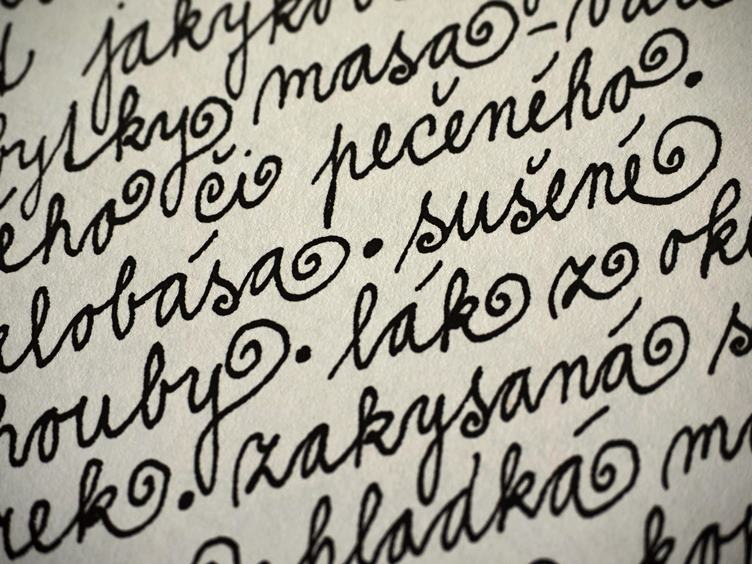 jakyko
bytky masa - va
ého či pečeného.
klobása • sušené
houby • lák z ok
rek • zakysaná s
hladká m